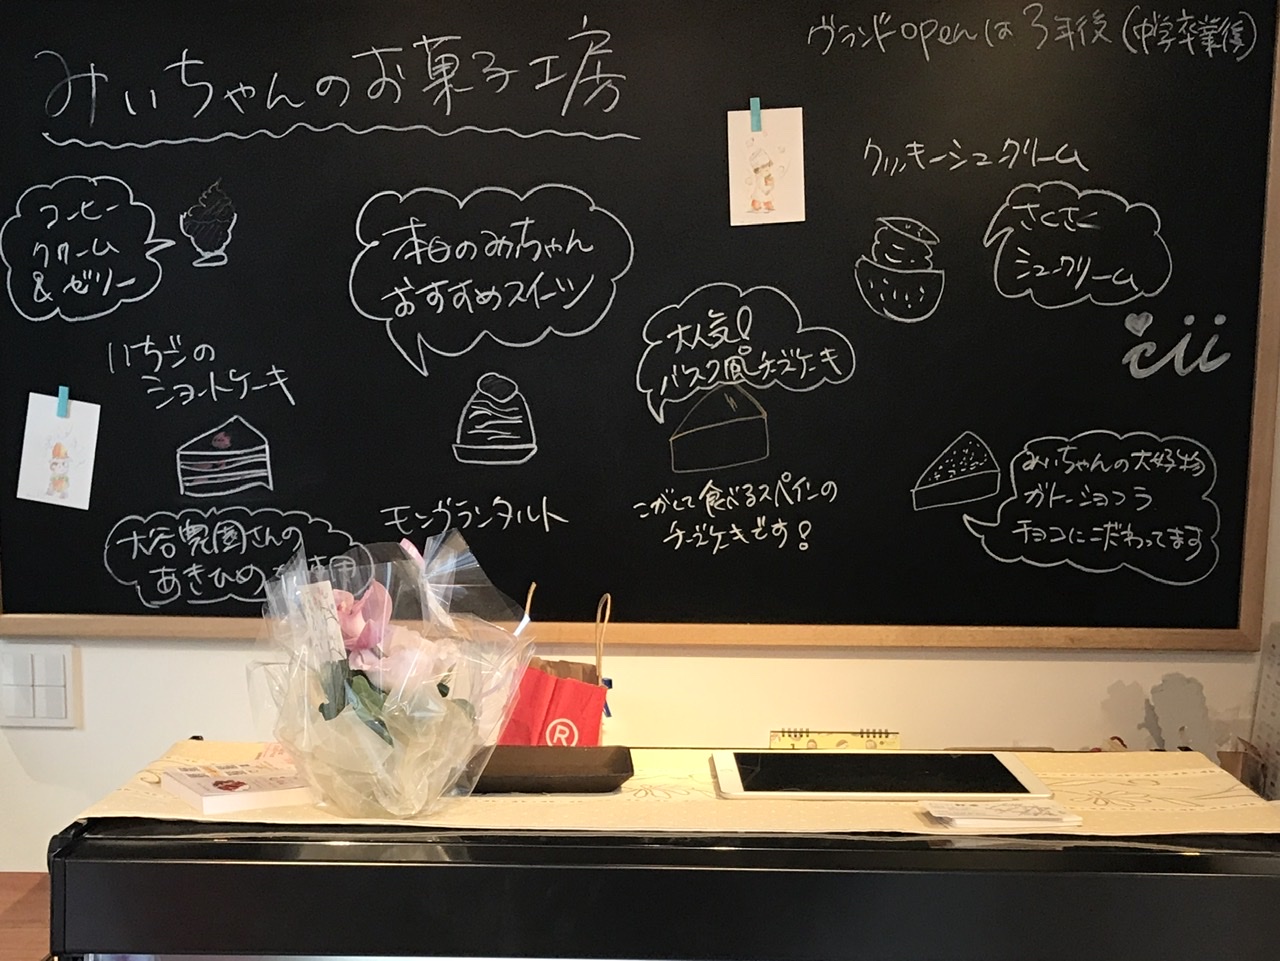 みいちゃんのお菓子工房
ヴランドopenは3年後(中学卒業後)
コーヒー
クリーム
&ゼリー
本日のみぃちゃん
おすすめスイーツ
クッキーシュークリーム
さくさく
シュークリーム
cii
いちごの
ショートケーキ
大谷農園さんの
あきひめ
モンブランタルト
大人気!
バスク風チーズケーキ
こがして食べるスペインの
チーズケーキです!
みぃちゃんの大好物
ガトーショコラ
チョコにこだわってます
R